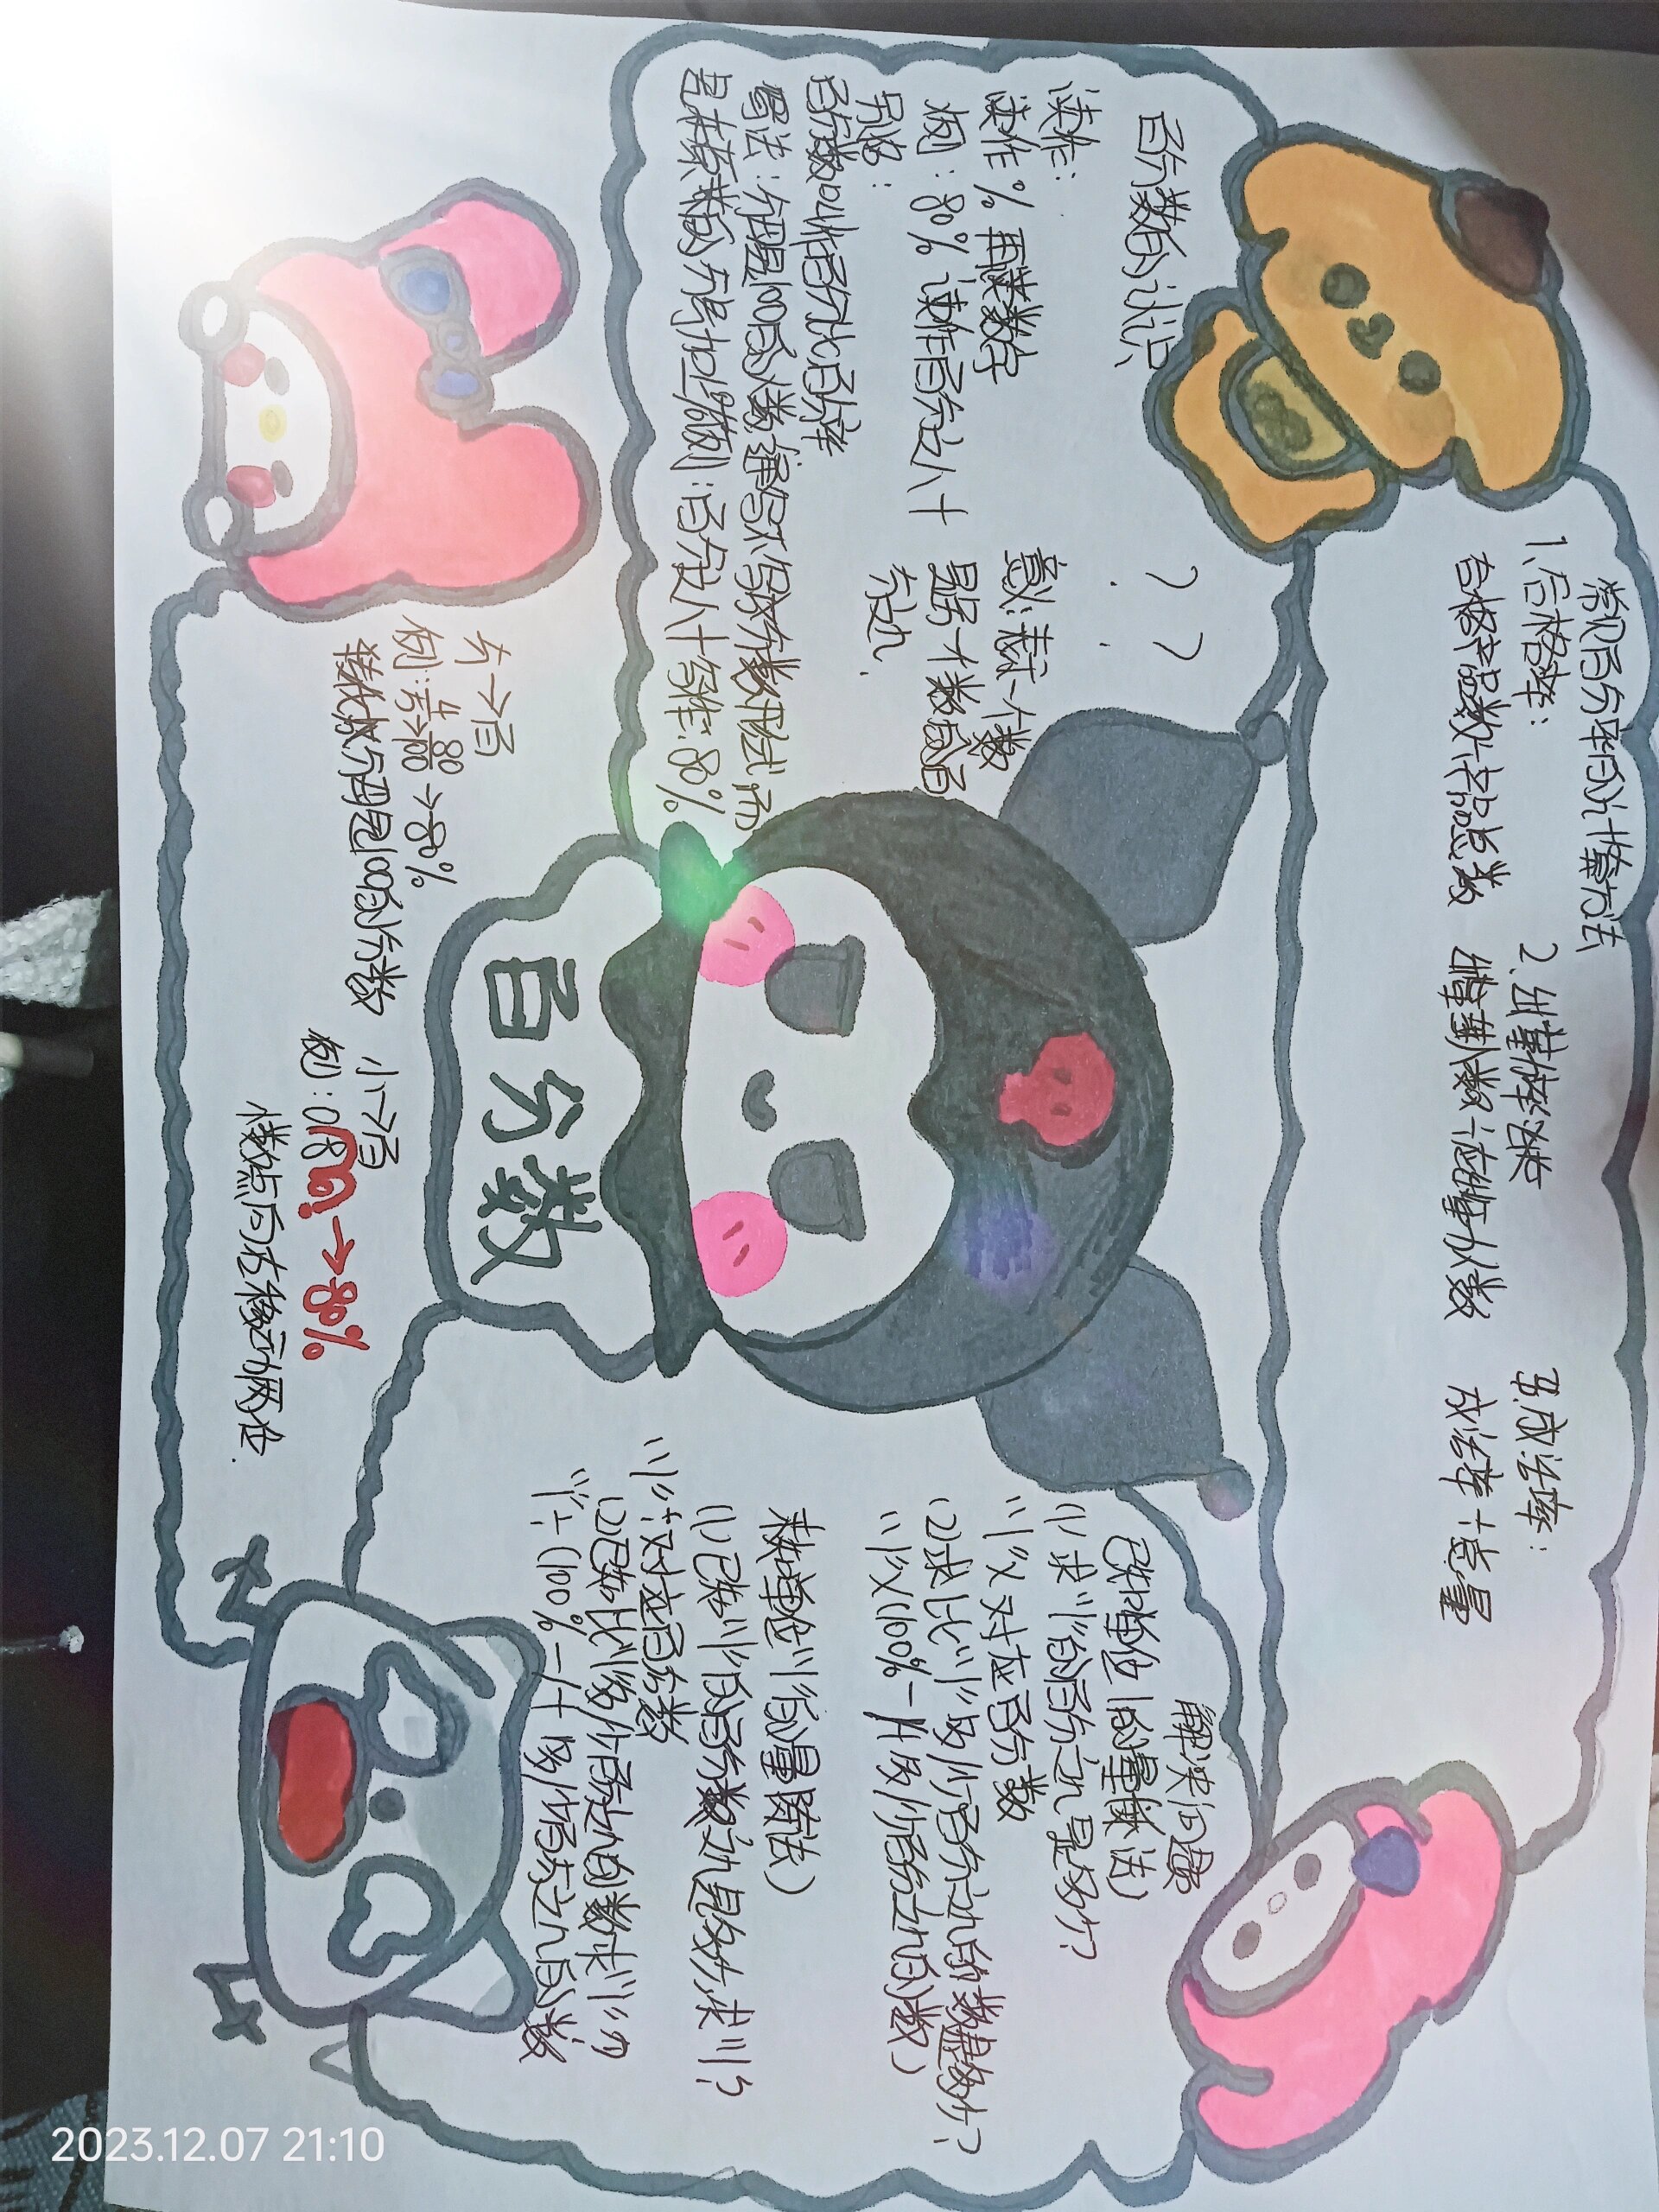 常见百分率的计算方法
1.合格率:
合格产品数÷产品总数
2.出勤率:
出勤人数÷应出勤人数
3.成活率:
成活率÷总量
百分数的认识
??
读作:
读作%再读数字
例:80% 读作百分之八十
意义:表示一个数
是另一个数的百
分之几.
另名:
百分数叫作百分比百分率
写法:分母是100的分数,通常不写成分数形式,而
是在原来的分子后加上%例:百分之八十写作:80%
百分数
解决问题
已知单位"1"的量(乘法)
(1)求"1"的百分之几是多少?
"1"×对应百分数
(2)求比"1"多/少百分之几的数是多少?
"1"×(100%-/+多/少百分之几的数)
求单位"1"的量(除法)
(1)已知"1"的百分数之几是多少,求"1"?
"1"÷对应百分数
(2)已知比"1"多/少百分之几的数求"1"的
"1"÷(100%-/+多/少百分之几的数
分→百
例:4/5→80/100→80%
转化成分母是100的分数
小→百
例:0.80.→80%
小数点向右移动两位.
2023.12.07 21:10